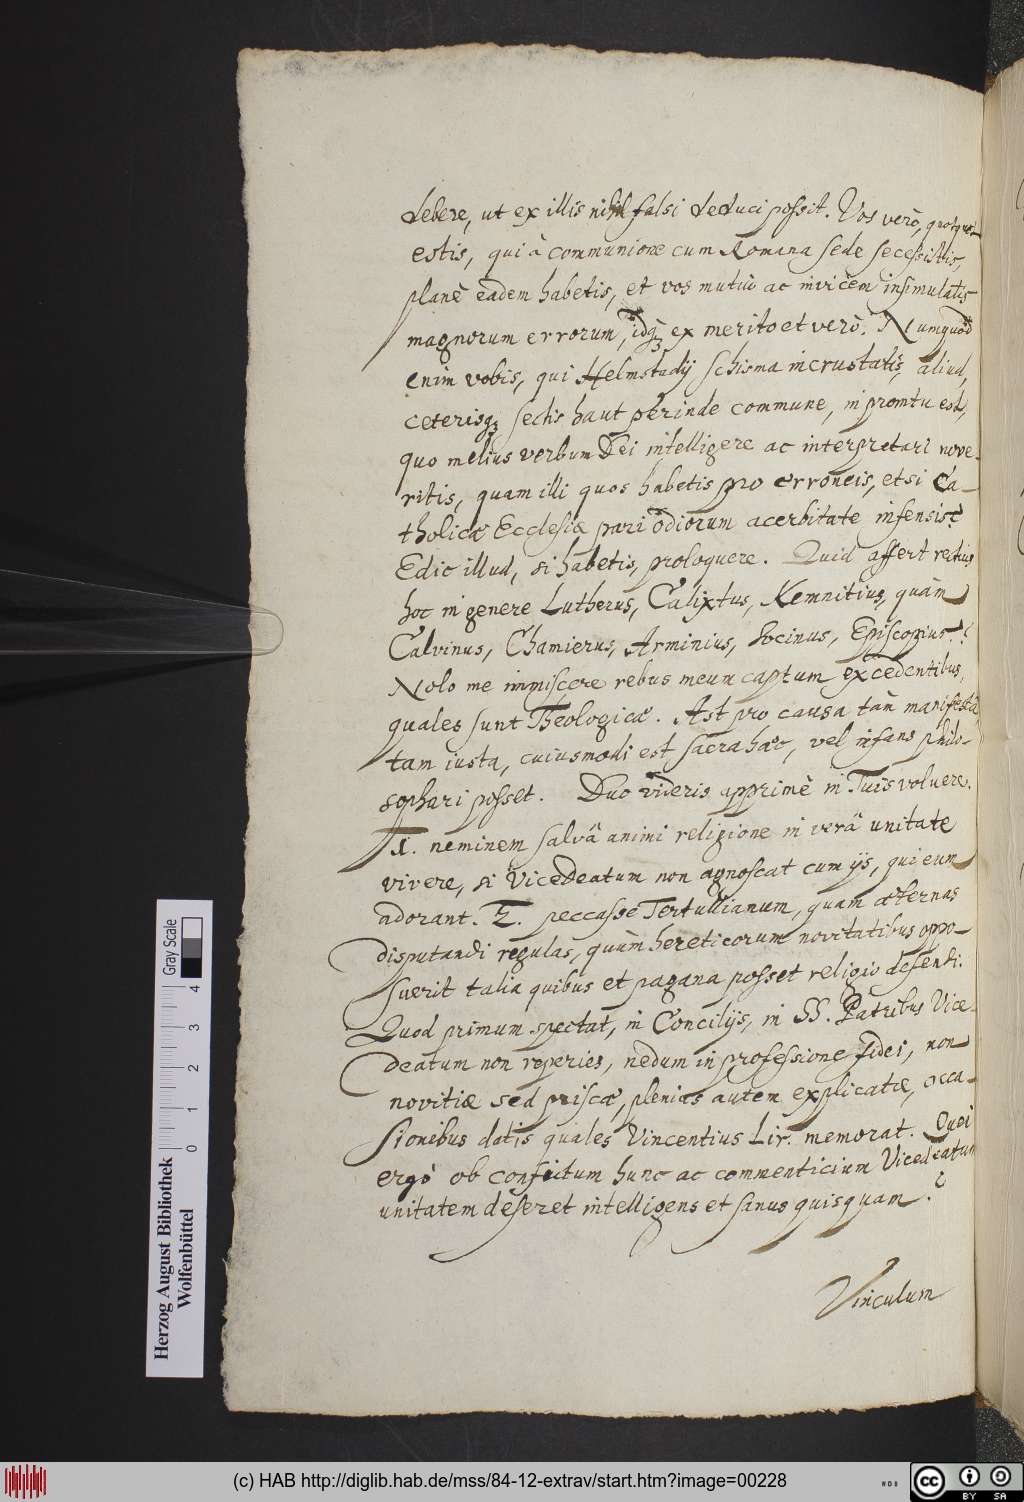 debere, ut ex illis nihil falsi deduci possit. Vos verò, quotquot
estis, qui à communione cum Romana sede secessistis,
planè eadem habetis, et vos mutuò ac invicem insimulatis
magnorum errorum, idqꝫ ex merito et verò. Numquod
enim vobis, qui Helmstadij schisma incrustatis, aliud,
ceterisqꝫ sectis haut perinde commune, in promtu est,
quo melius verbum Dei intelligere ac interpretari nove-
ritis, quam illi quos habetis pro erroneis, etsi Ca-
tholicæ Ecclesiæ pari odiorum acerbitate infensis?
Edic illud, si habetis, prologuere. Quid affert rectius
hoc in genere Lutherus, Calixtus, Kemnitius, quàm
Calvinus, Chamierus, Arminius, Socinus, Episcopius?
Nolo me immiscere rebus meum captum excedentibus,
quales sunt Theologicæ. Ast pro causa tàm manifesta
tam iusta, cuiusmodi est sacra hæc, vel infans philo-
sophari posset. Duo videris apprimè in Tuis voluere.
1. neminem salvâ animi religione in verâ unitate
vivere, si ViceDeatum non agnoscat cum ijs, qui eum
adorant. 2. peccasse Tertullianum, quam æternas
disputandi regulas, quùm hereticorum novitatibus oppo-
suerit talia quibus et pagana posset religio defendi.
Quod primum spectat, in Concilijs, in SS. Patribus Vice-
deatum non reperies, nedum in professione fidei, non
novitiæ sed priscæ, plenius autem explicatæ, occa-
sionibus datis quales Vincentius Lir. memorat. Quei
ergò ob confictum hunc ac commenticium Vicedeatum
unitatem deseret intelligens et sanus quisquam?
Vinculum
Herzog August Bibliothek
Wolfenbüttel
0 1 2 3 4
Gray Scale
(c) HAB http://diglib.hab.de/mss/84-12-extrav/start.htm?image=00228
cc BY SA